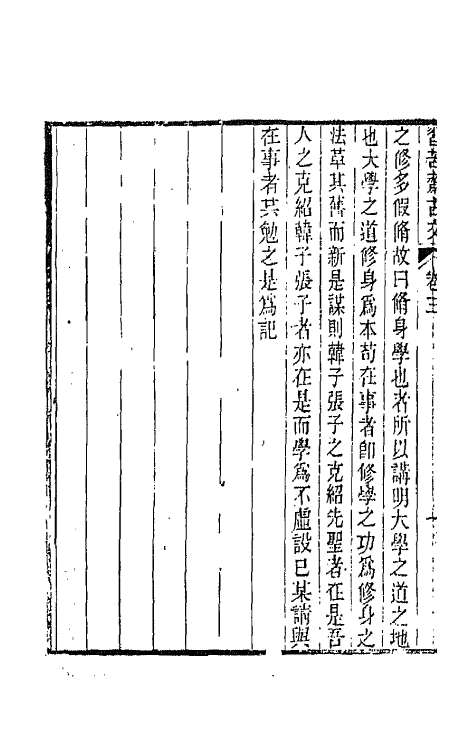 齋古文 卷三
之修多假脩故曰脩身學也者所以講明大學之道之地
也大學之道修身爲本苟在事者卽修學之功爲修身之
法草其舊而新是謀則韓子張子之克紹先聖者在是吾
人之克紹韓子張子者亦在是而學爲不虛設已某請與
在事者共勉之是爲記